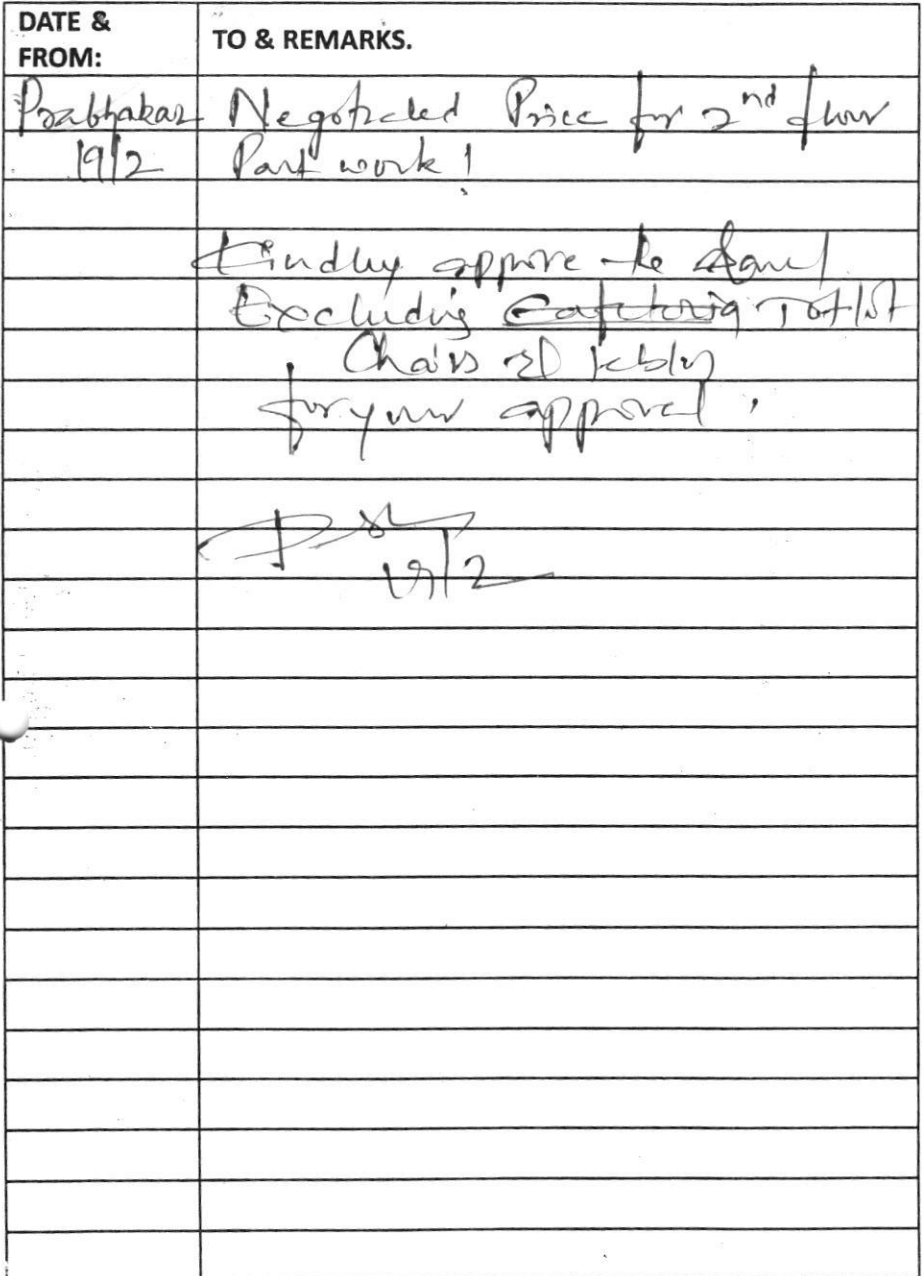 DATE &
FROM:
TO & REMARKS.
Prabhakar
19/2
Negotiated Price for 2nd floor
Part work!
Kindly approve the
Excluding Cafetoria
Chairs
for your approval.
19/2